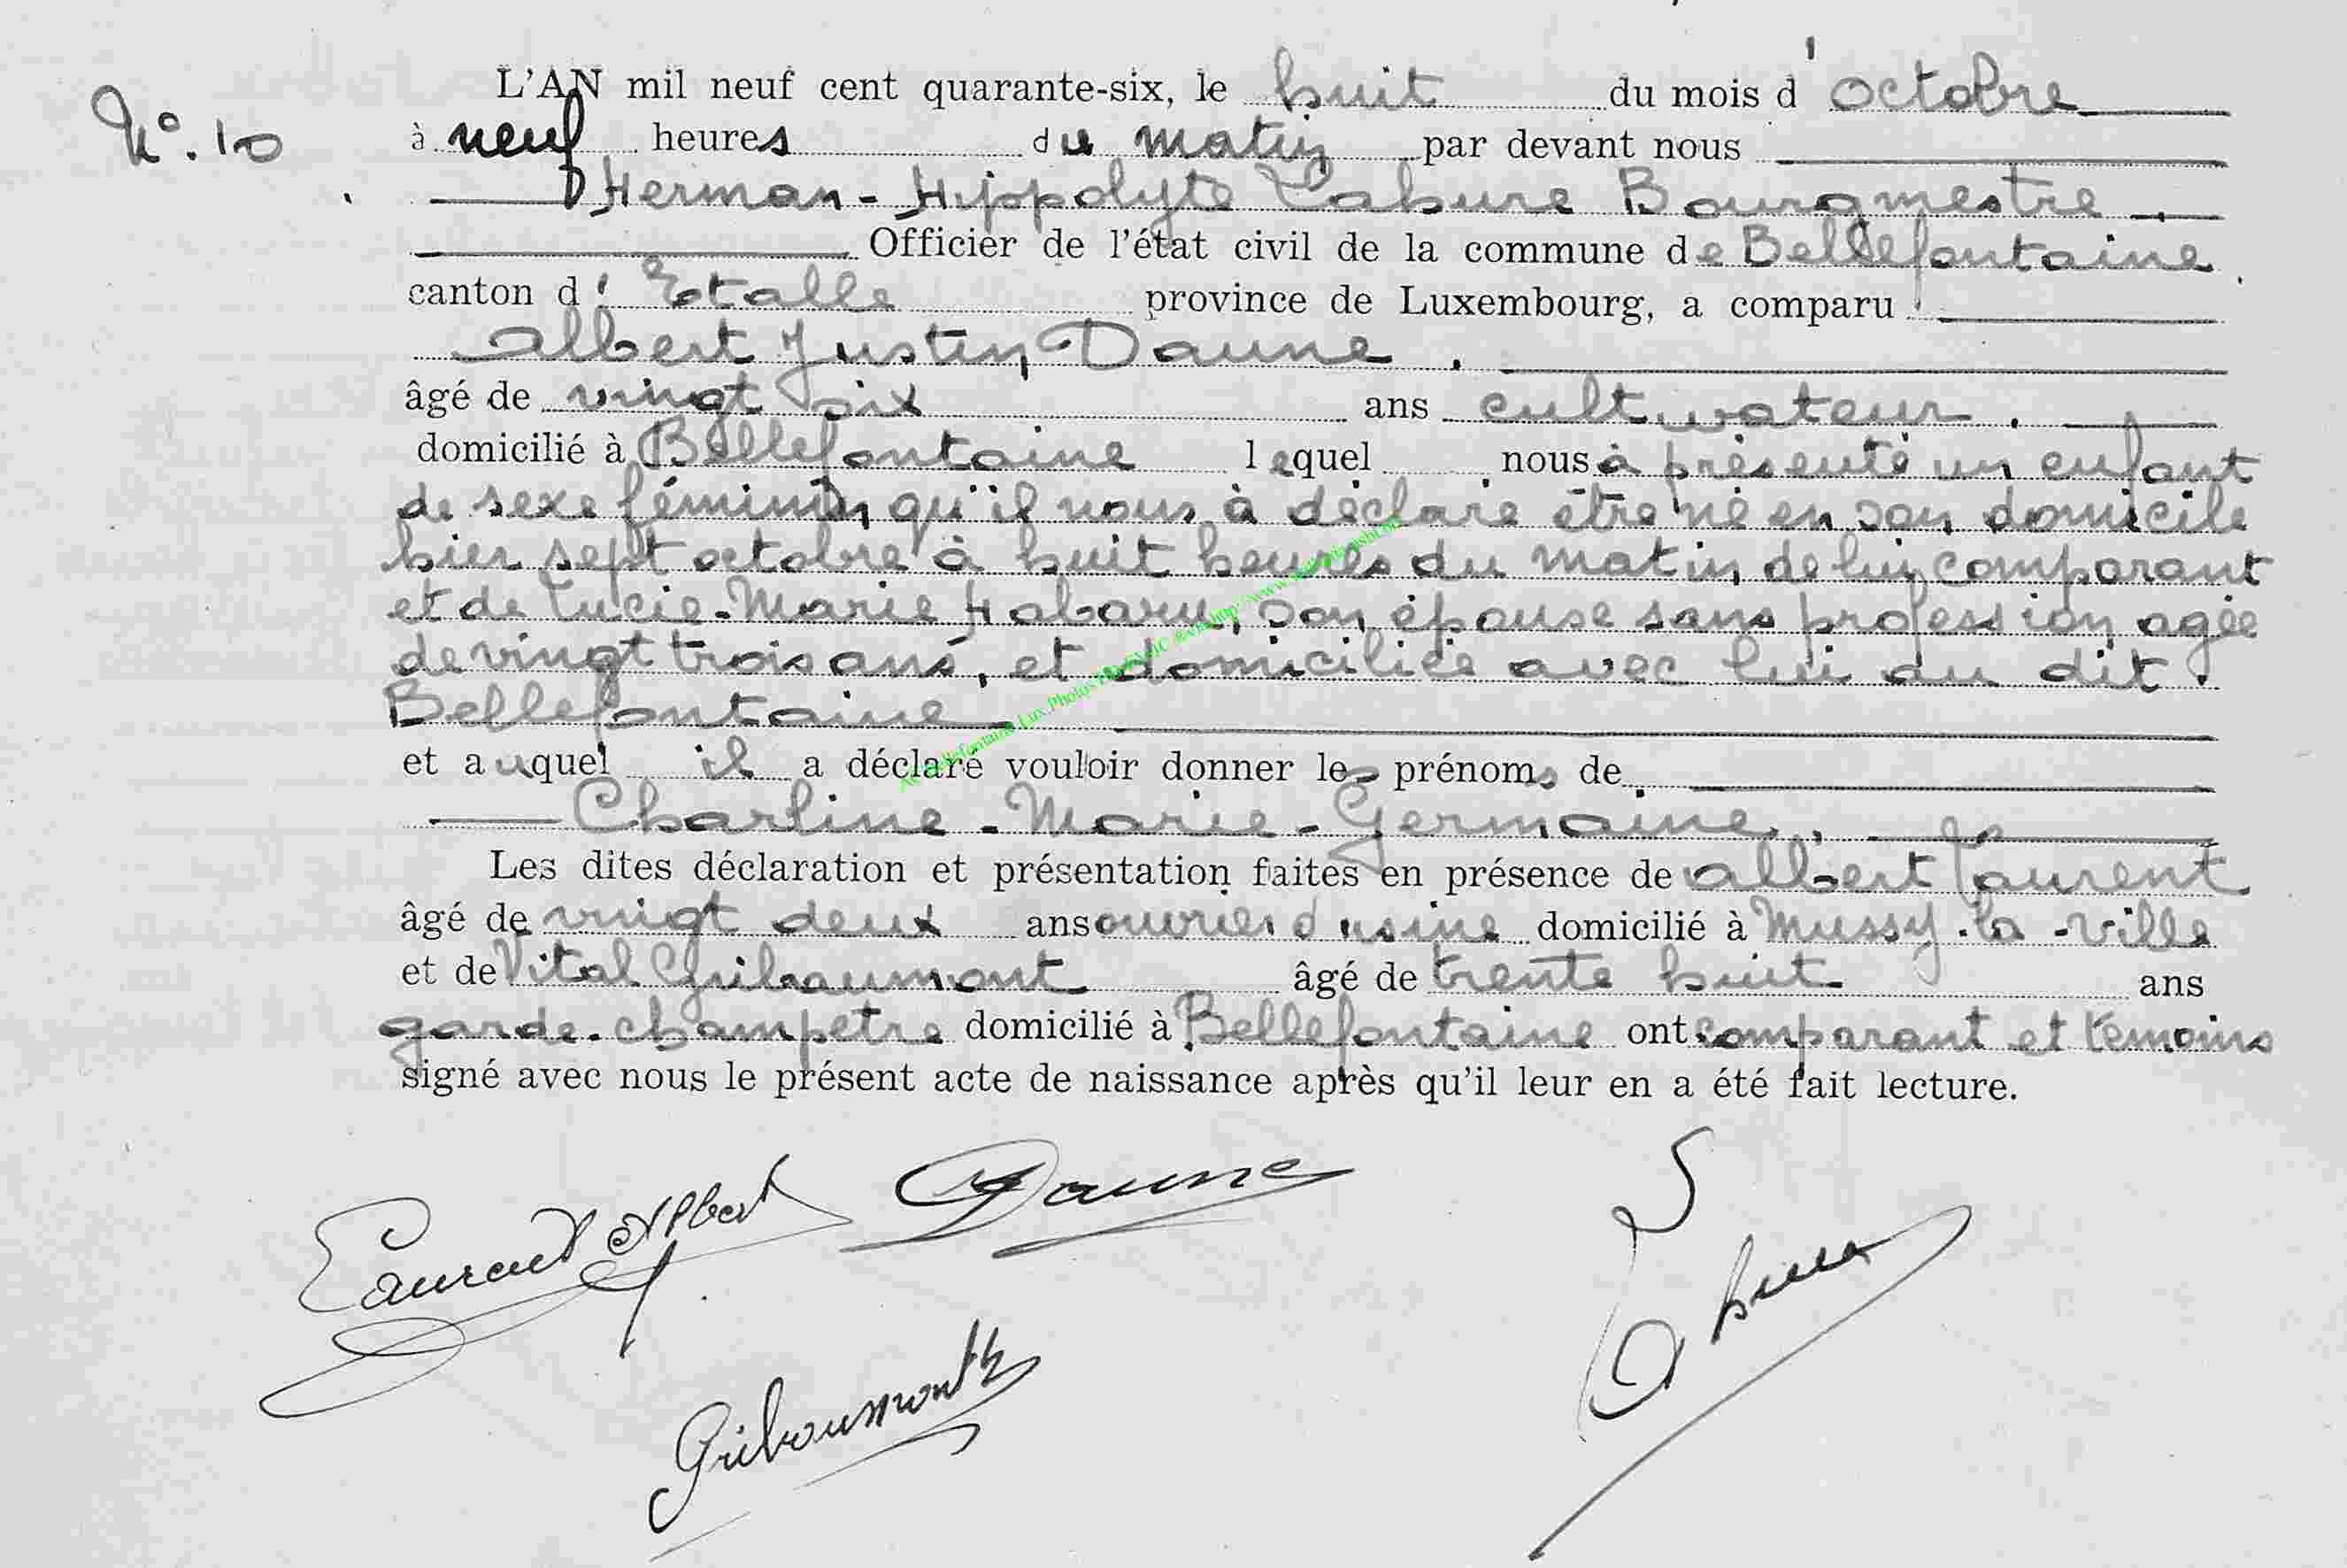 L'AN mil neuf cent quarante-six, le huit du mois d'octobre
N°. 10
à neuf heures du matin par devant nous
Herman-Hippolyte Labure Bourgmestre.
Officier de l'état civil de la commune de Bellefontaine.
canton d'Etalle province de Luxembourg, a comparu
Albert Justin Daune.
âgé de vingt six ans cultivateur.
domicilié à Bellefontaine lequel nous à présenté un enfant
de sexe féminin qu'il nous à déclaré être né en son domicile
hier sept octobre à huit heures du matin, de lui comparant
et de Lucie-Marie Habaru, son épouse sans profession agée
de vingt trois ans, et domiciliée avec lui au dit.
Bellefontaine
et auquel il a déclaré vouloir donner les prénoms de
Charline-Marie-Germaine.
Les dites déclaration et présentation faites en présence de Albert Laurent
âgé de vingt deux ans ouvrier d'usine domicilié à Mussy-la-ville
et de Vital Gribaumont âgé de trente huit ans
garde-champetre domicilié à Bellefontaine ont comparant et témoins
signé avec nous le présent acte de naissance après qu'il leur en a été fait lecture.
Laurent Albert Daune
Gribaumont